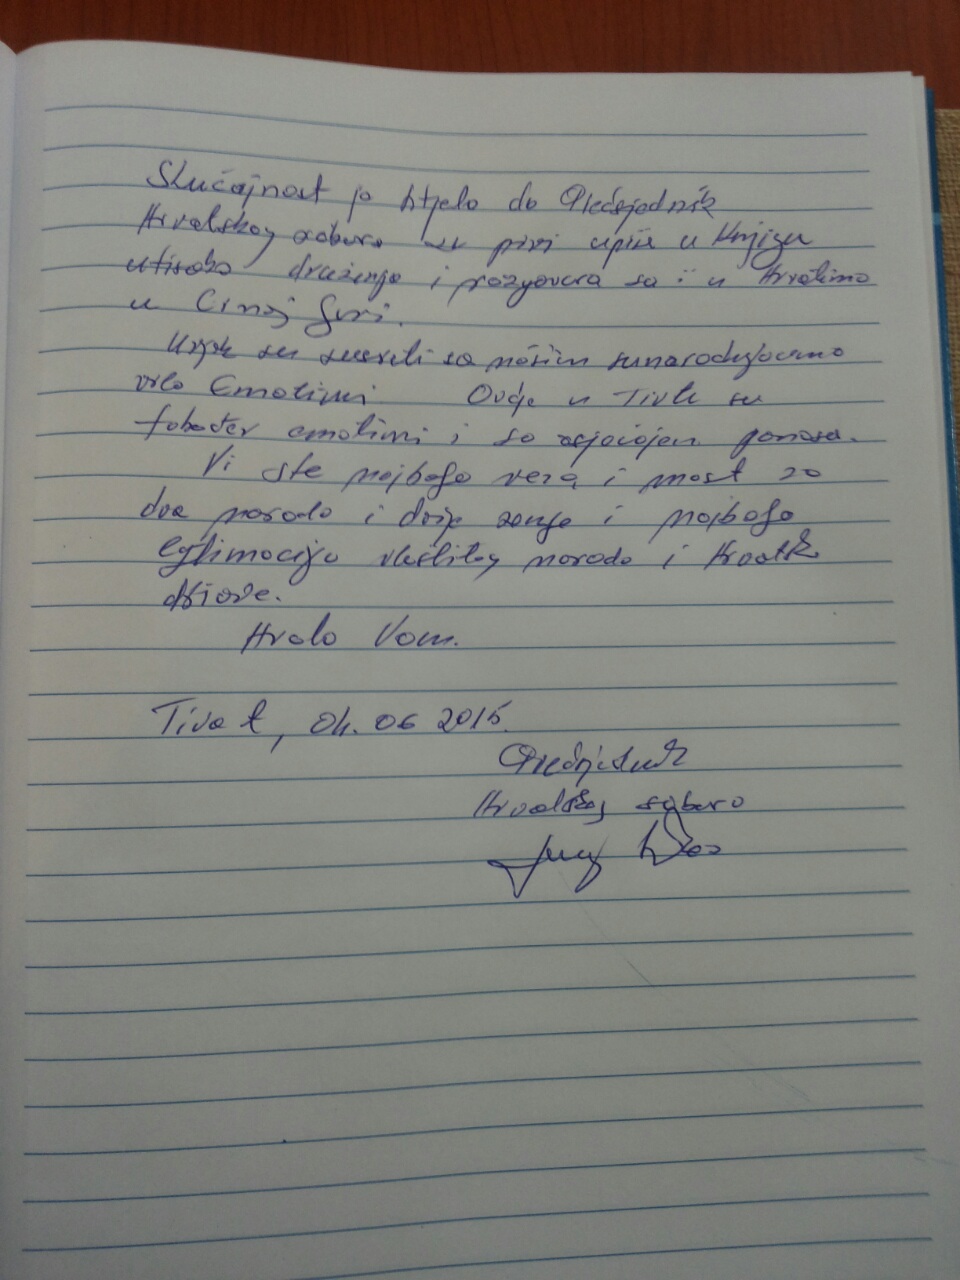 Slučajnost je htjela da Predsjednik
Hrvatskog sabora se prvi upiše u Knjigu
utisaka druženja i razgovora sa i u Hrvatima
u Crnoj Gori.
Uvijek su susreti sa našim sunarodnjacima
vrlo emotivni. Ovdje u Tivtu su
također emotivni i sa osjećajem ponosa.
Vi ste najbolja veza i most za
dva naroda i dvije zemlje i najbolja
legitimacija vlastitog naroda i Hrvatske
države.
Hvala Vam.
Tivat, 04.06 2015.
Predsjednik
Hrvatskog sabora